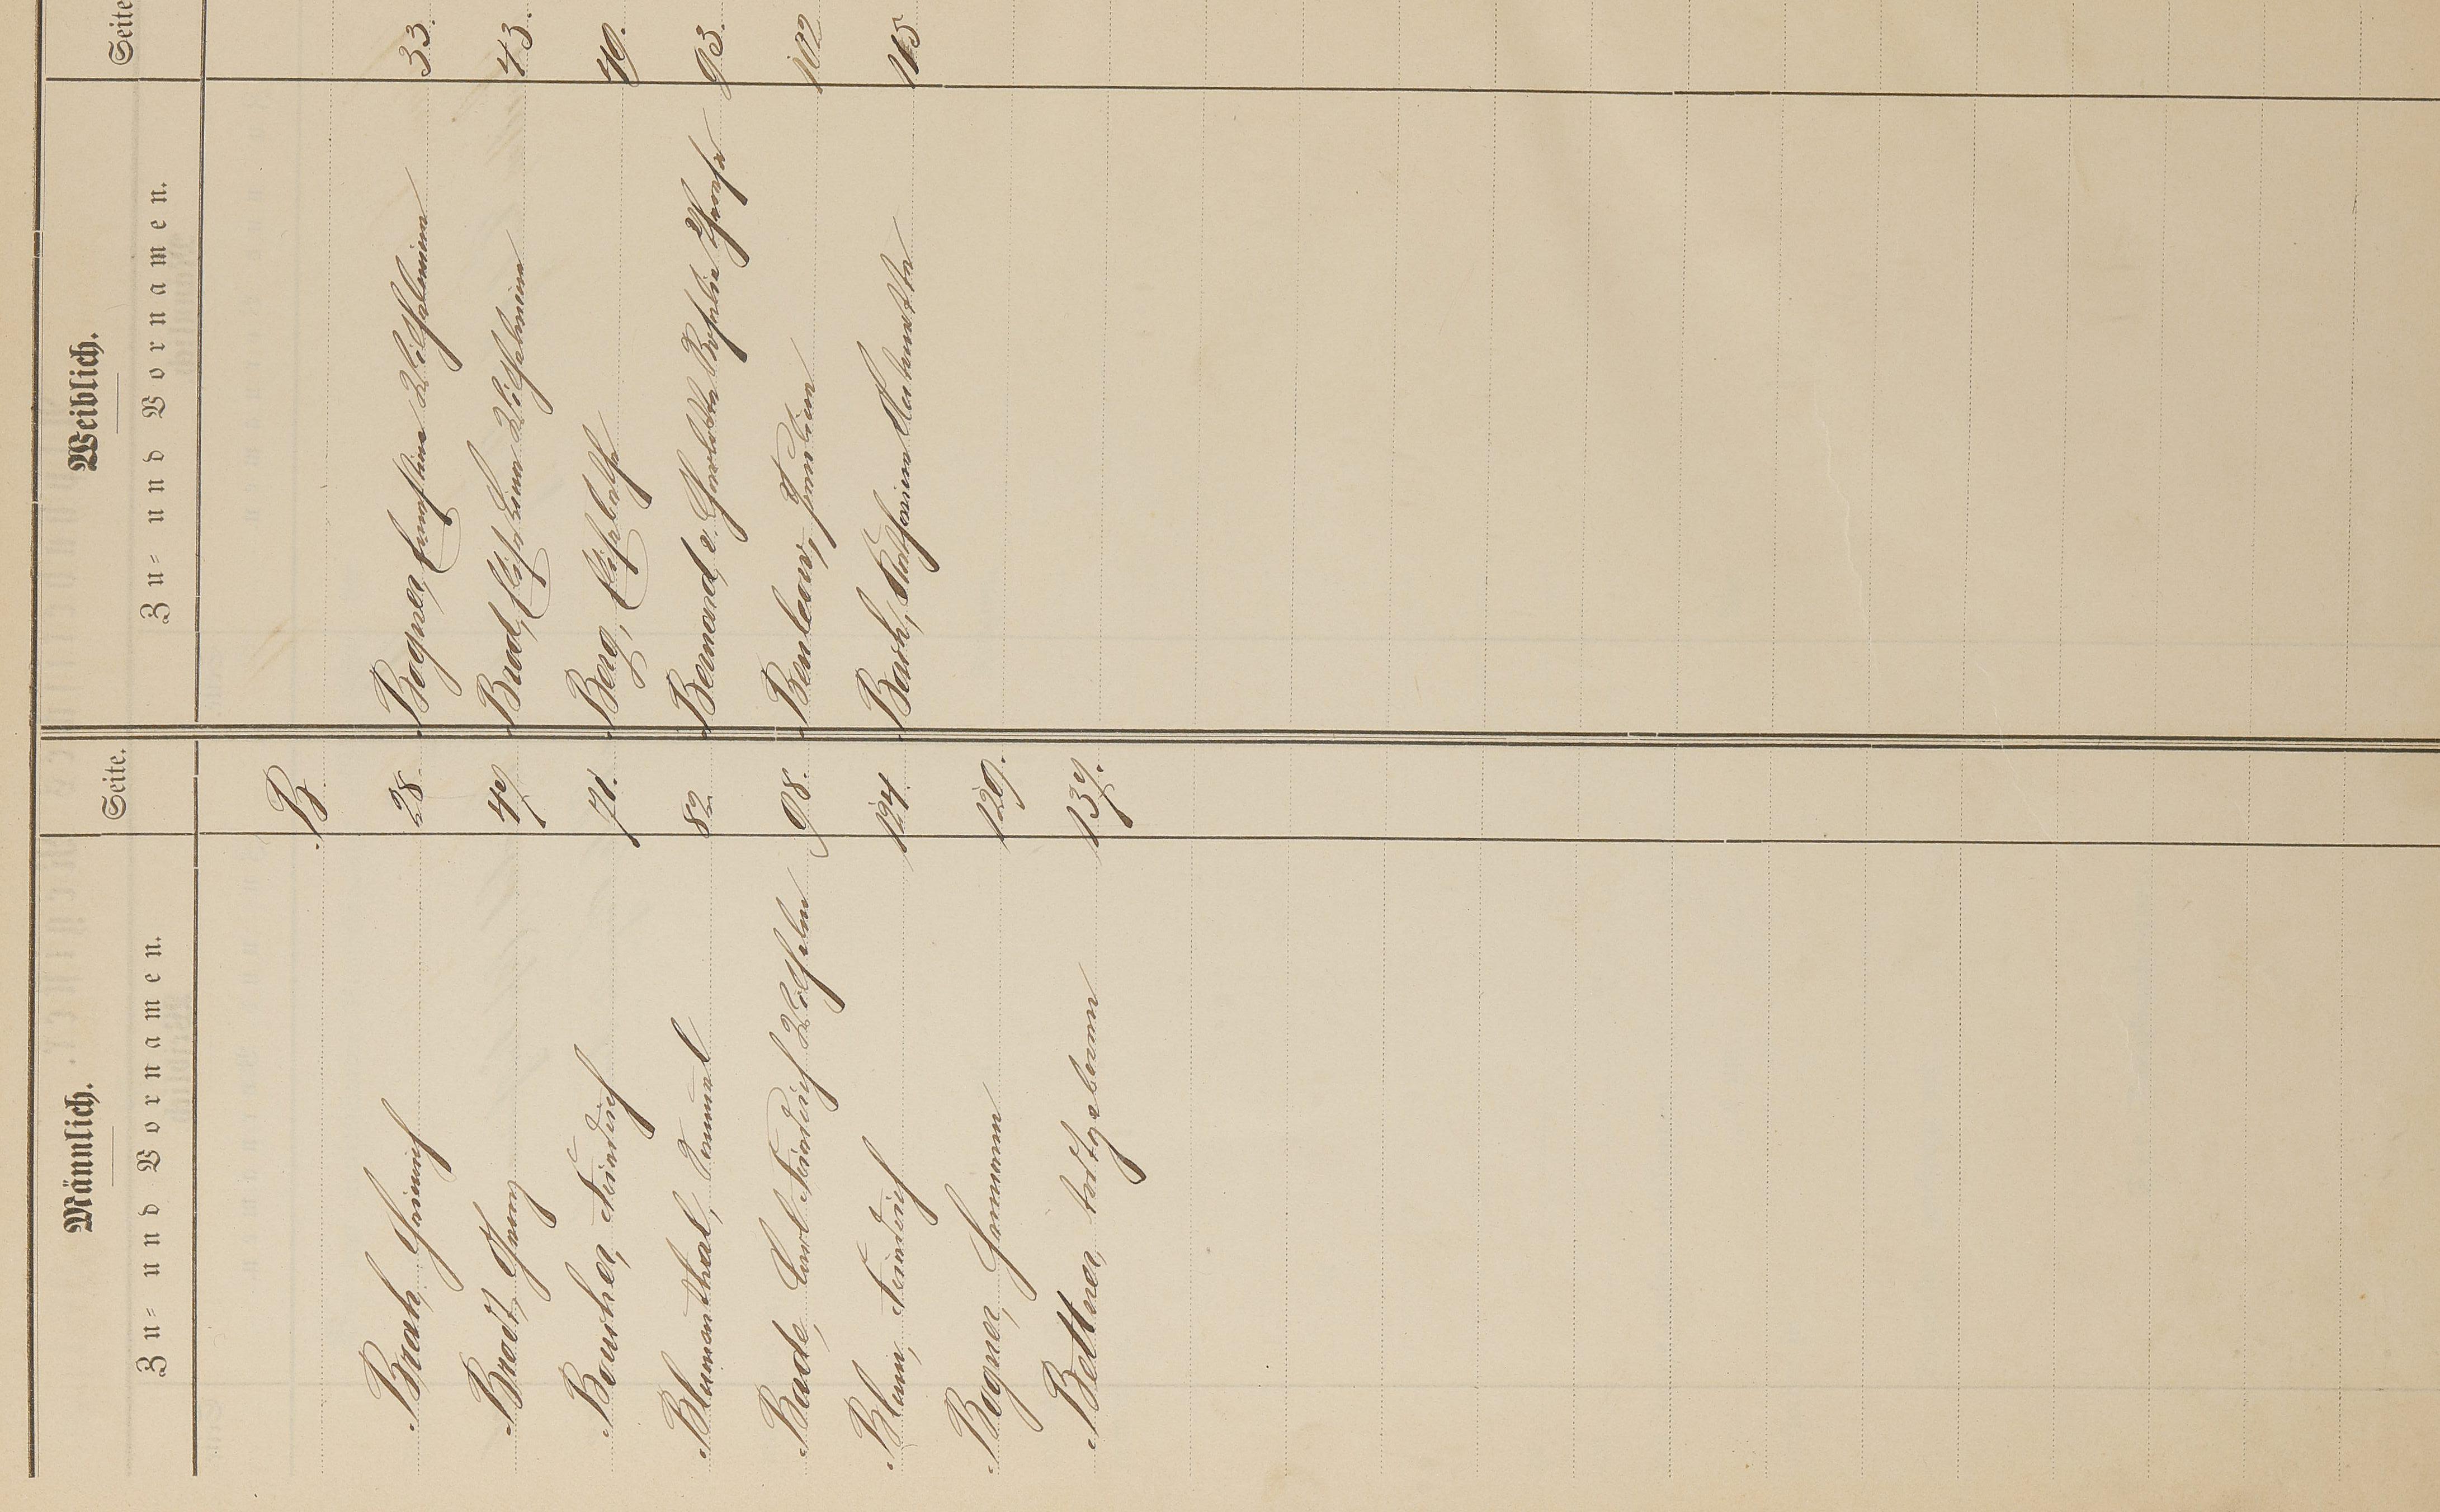 Männlich. Weiblich.
Zu= und Vornamen. Seite. Zu= und Vornamen. Seite
B.
Brah, Heinrich 28. Bogner, Ernestine Wilhelmine 33.
Brodt, Georg 47 Brod, Elise Lina Wilhelmine 43.
Bourher, Friedrich 71. Berg, Elisabethe 49.
Blumenthal, Samuel 82 Bernard, v. Charlotte Rosalie Therese 93.
Bade, Carl Friedrich Wilhelm 98. Benleow, Pauline 102
Blum, Friedrich 124 Barh, Katharine Antonette 115
Bogner, Hermann 129.
Bettner, todtgeboren 137.